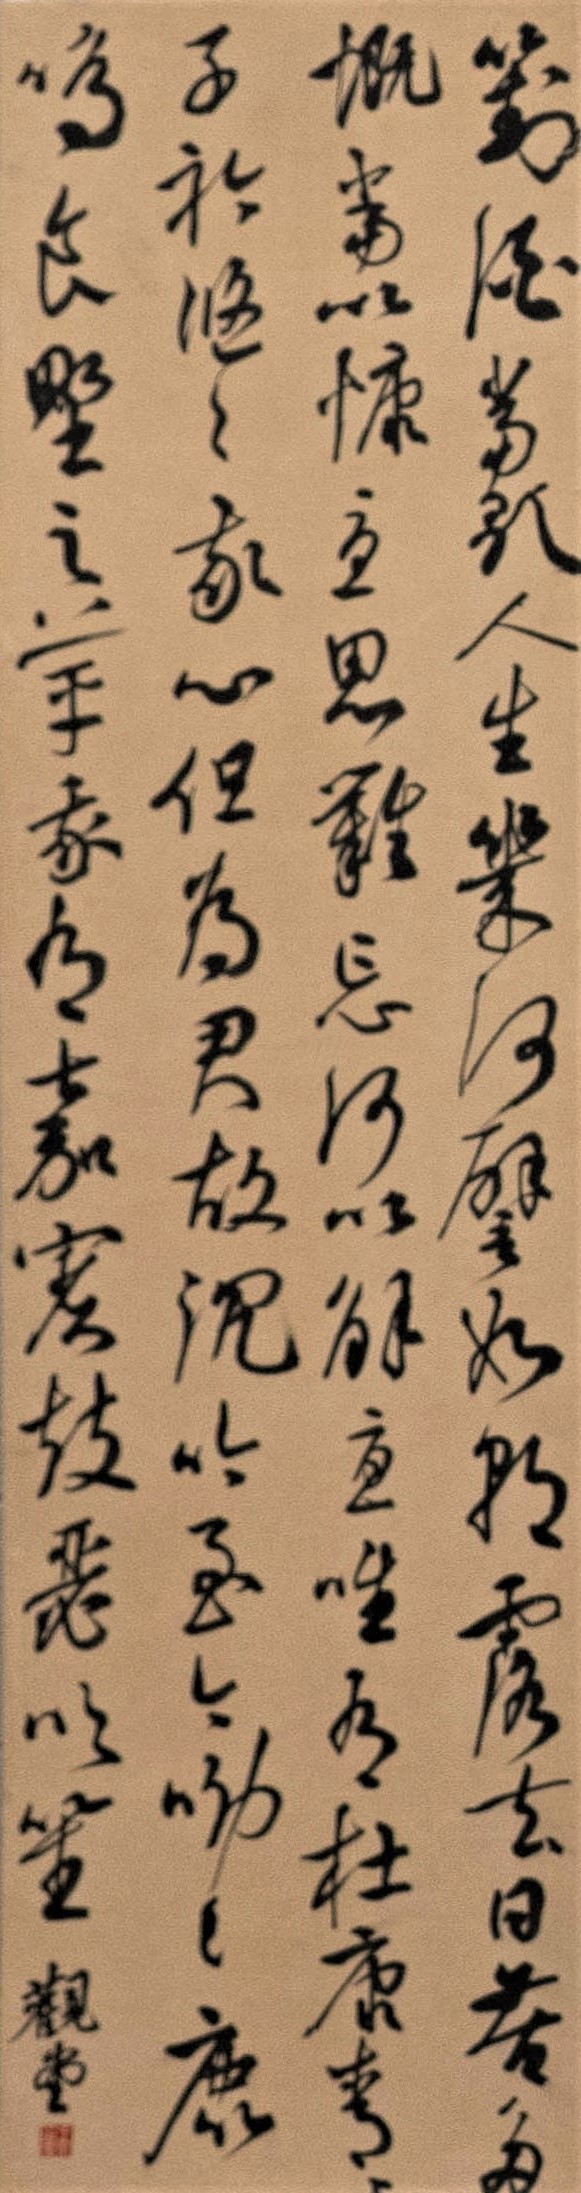 對酒當歌人生幾何譬如朝露去日苦多
慨當以慷憂思難忘何以解憂唯有杜康青々
子衿悠々我心但為君故沉吟至今呦々鹿
鳴食野之苹我有嘉賓鼓瑟吹笙 觀堂